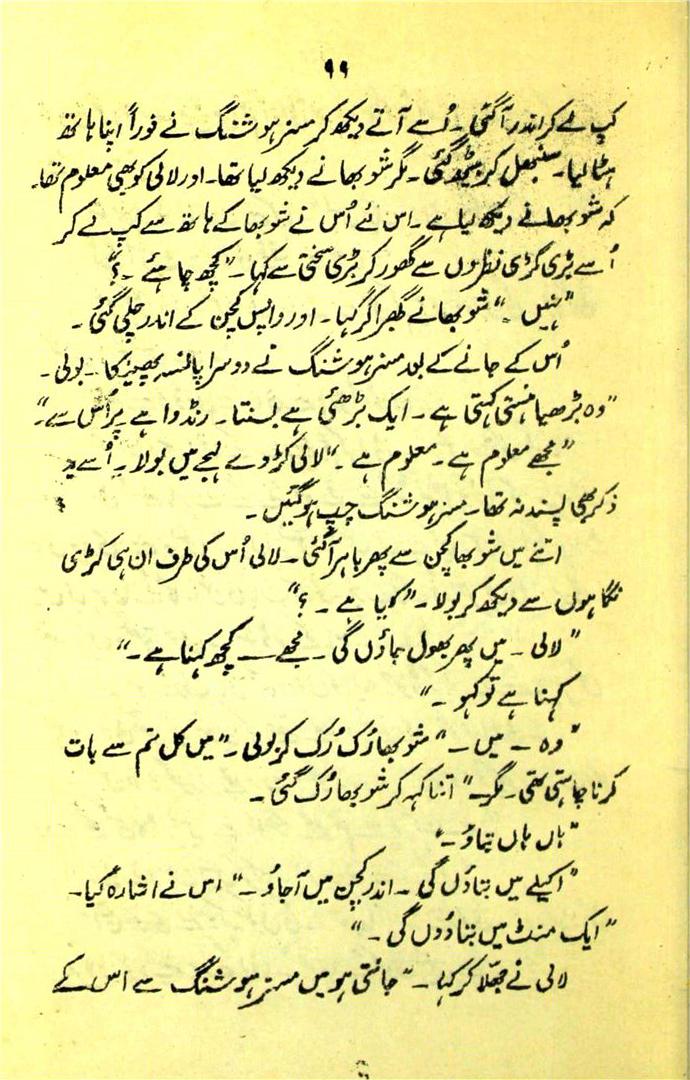 ۹۹
کپ لے کر اندر آ گئی ۔ اُسے آتے دیکھ کر مسز ہوشنگ نے فوراً اپنا ہاتھ
ہٹا لیا۔ سنبھل کر بیٹھ گئی۔ مگر شوبھا نے دیکھ لیا تھا۔ اور لالی کو بھی معلوم تھا۔
کہ شوبھا نے دیکھ لیا ہے ۔ اس لئے اُس نے شوبھا کے ہاتھ سے کپ لے کر
اُسے بڑی کڑی نظروں سے گھور کر بڑی سختی سے کہا ۔ "کچھ چاہئے ۔ ؟"
"نہیں ۔" شوبھا نے گھبرا کر کہا ۔ اور واپس کچن کے اندر چلی گئی ۔
اُس کے جانے کے بعد مسز ہوشنگ نے دوسرا پانسہ پھینکا ۔ بولی ۔
"وہ بڑھیا ہنستی کہتی ہے ۔ ایک بڑھئی ہے بسنتا ۔ رنڈوا ہے پر اُس سے ۔"
"مجھے معلوم ہے ۔ معلوم ہے ۔" لالی کڑوے لہجے میں بولا ۔ اُسے یہ
ذکر بھی پسند نہ تھا ۔ مسز ہوشنگ چپ ہو گئیں ۔
اتنے میں شوبھا کچن سے پھر باہر آ گئی ۔ لالی اُس کی طرف ان ہی کڑی
نگاہوں سے دیکھ کر بولا ۔ "کیا ہے ۔ ؟"
"لالی ۔ میں پھر بھول جاؤں گی ۔ مجھے ــ کچھ کہنا ہے ۔"
کہنا ہے تو کہو ۔"
"وہ ۔ میں ۔" شوبھا رُک رُک کر بولی ۔ "میں کل تم سے بات
کرنا چاہتی تھی ۔ مگر ۔" اتنا کہہ کر شوبھا رُک گئی ۔
"ہاں ہاں بتاؤ ۔"
"اکیلے میں بتاؤں گی ۔ اندر کچن میں آ جاؤ ۔" اس نے اشارہ کیا۔
"ایک منٹ میں بتا دوں گی ۔"
لالی نے جھّلا کر کہا ۔ "جانتی ہو میں مسز ہوشنگ سے اس کے